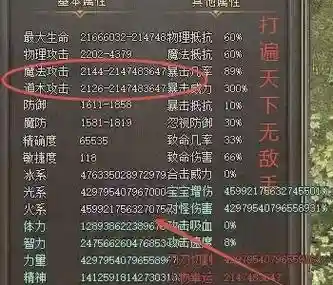 基本属性 其他属性
最大生命 21666032-2147483647 物理抵抗 60%
物理攻击 2202-4379 魔法抵抗 60%
魔法攻击 2144-2147483647 暴击几率 89%
道术攻击 2126-2147483647 暴击威力 300%
防御 1611-1858 暴击抵抗 10%
魔防 1581-1819 忽视防御 30%
精确度 65535 致命几率 33%
敏捷度 118 致命伤害 66%
冰系 合击威力 0%
光系 429795407967000 宝宝增伤
火系 对怪伤害
体力 攻击吸血 0%
智力 攻击速度 8%
力量
精神 2147483647
打遍天下无敌手